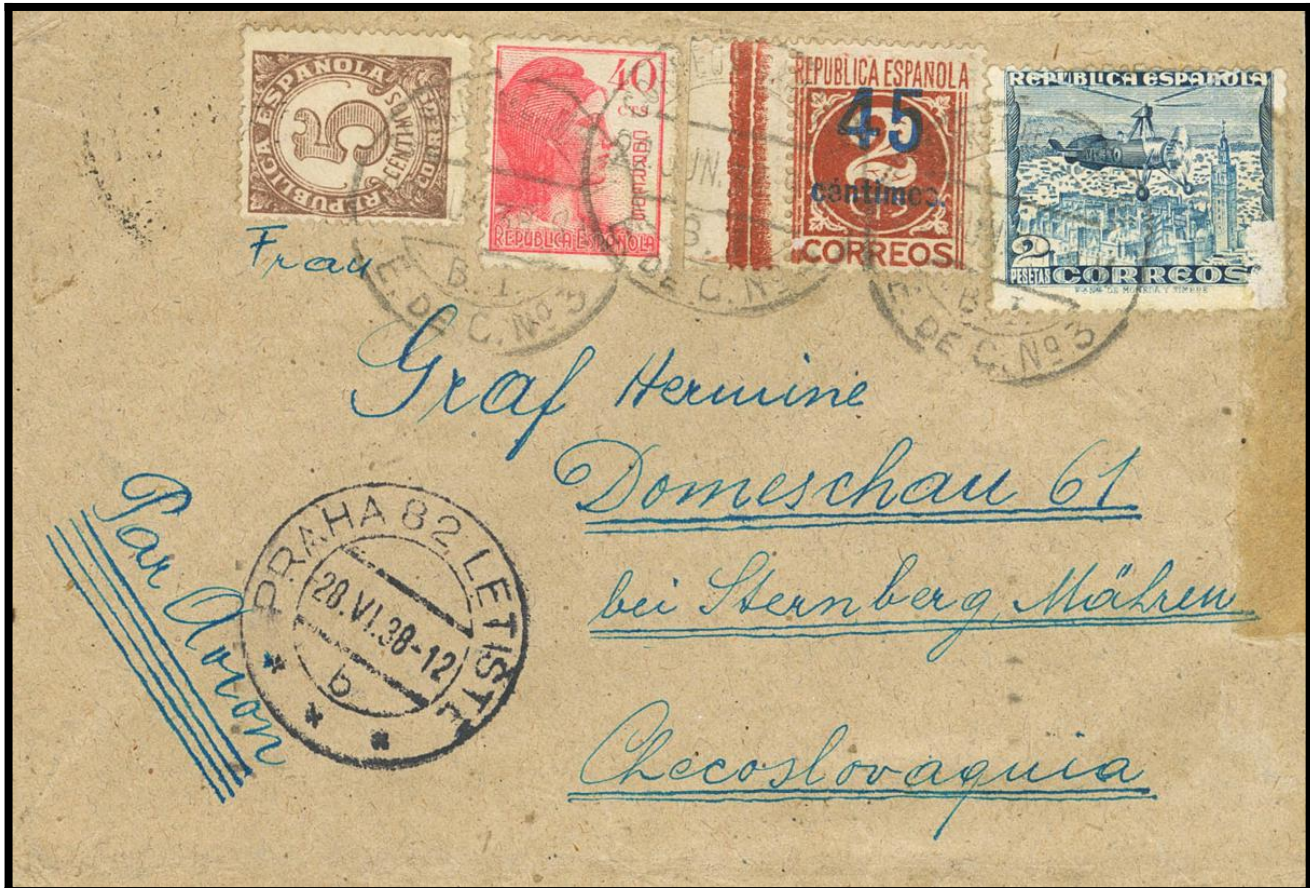 REPUBLICA ESPAÑOLA
5
CENTIMOS
CORREOS
40
CTS
CORREOS
REPUBLICA ESPAÑOLA
REPUBLICA ESPAÑOLA
45
2
céntimos.
CORREOS
REPUBLICA ESPAÑOLA
2
PESETAS CORREOS
B.I.
E. DE C. Nº 3
JUN.
B.
DE C. Nº
B.I.
E. DE C. Nº 3
Frau
Graf Hermine
Domeschau 61
bei Sternberg, Mähren
Checoslovaquia
Par Avion
PRAHA 82 LETIŠTĚ
28.VI.38-12
b